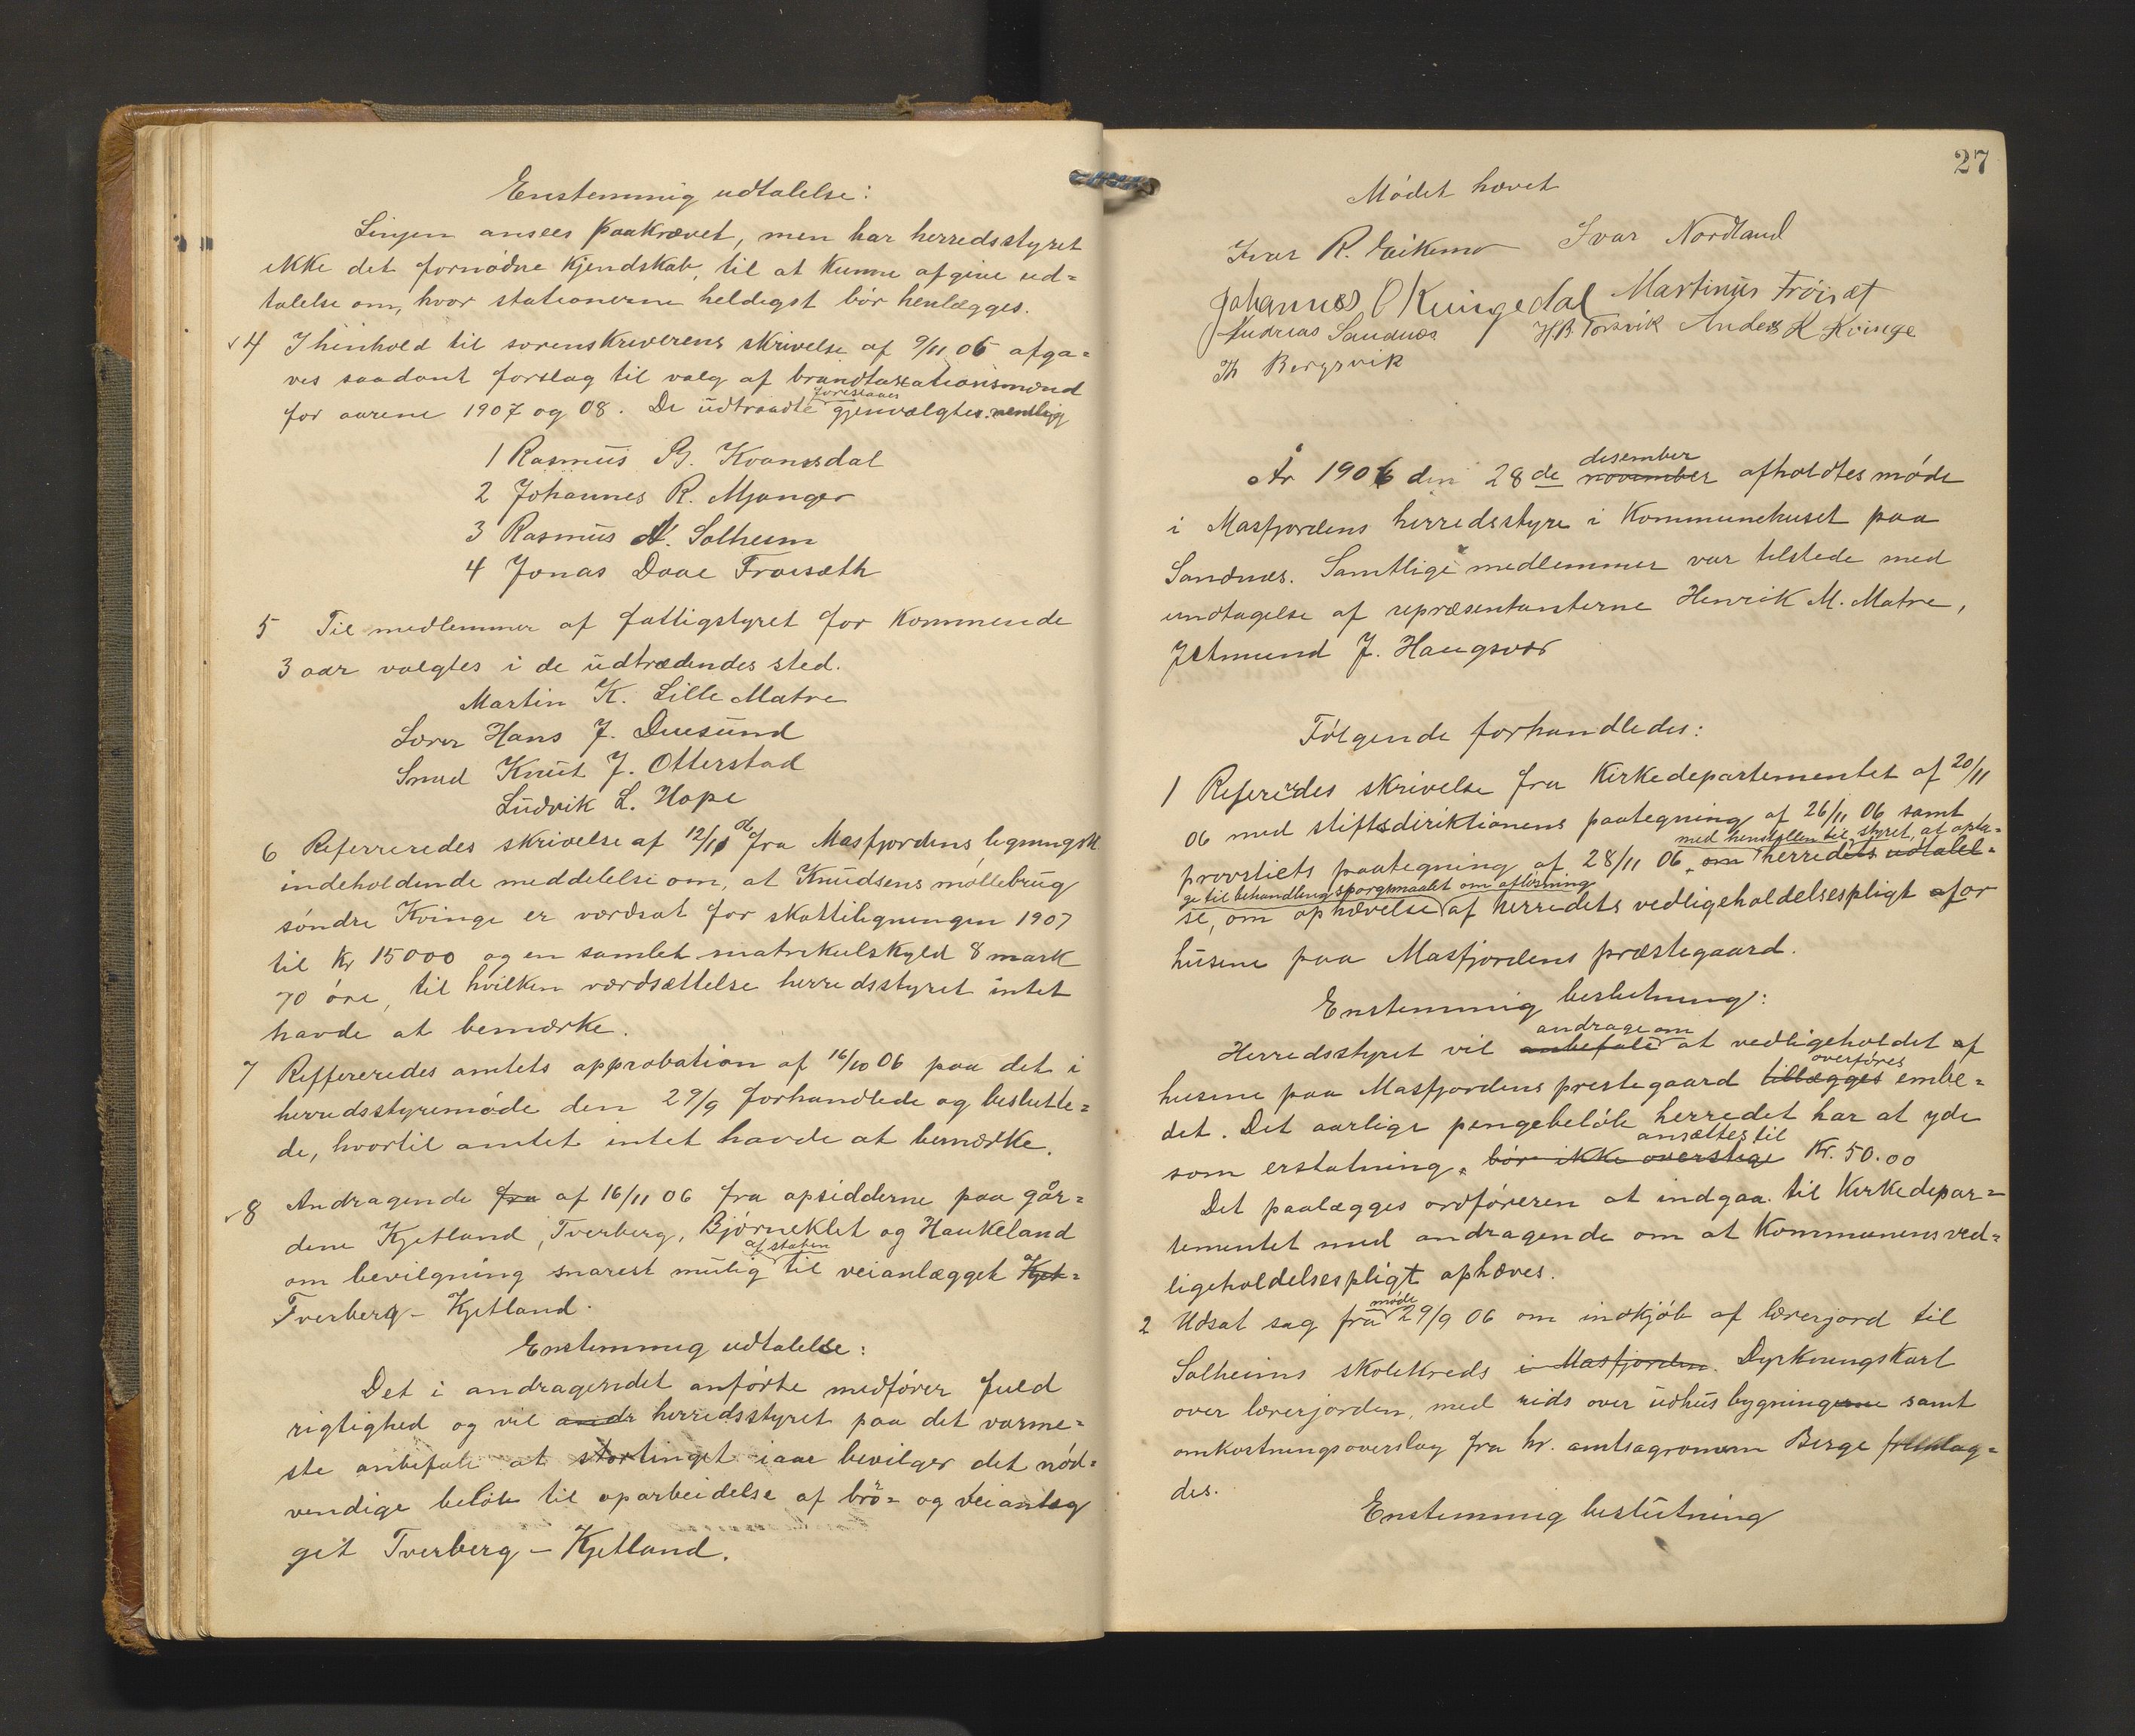 Enstemmig udtalelse:
Linjen ansees paakrævet, men har herredsstyret
ikke det fornødne kjendskab, til at kunne afgive ud=
talelse om, hvor stationerne heldigst bør henlægges.
4 I henhold til sorenskriverens skrivelse af 9/11 06 afga=
ves saadant forslag til valg af brandtaxationsmænd
for aarene 1907 og 08. De udtraadte foreslaaes gjenvalgte. nemlig
1 Rasmus B. Kvamsdal
2 Johannes R. Mjanger
3 Rasmus N. Solheim
4 Jonas Daae Frøisæth
5 Til medlemmer af fattigstyret for kommende
3 aar valgtes i de udtrædendes sted.
Martin K. Lille Matre
Lærer Hans J. Duesund
Smed Knut J. Otterstad
Ludvik L. Hope
6 Referreredes skrivelse af 12/11 06 fra Masfjordens ligningsk
indeholdende meddelelse om, at Knudsens møllebrug
søndre Kvinge er værdsat for skatteligningen 1907
til kr 15000 og en samlet matrikulskyld 8 mark
70 øre, til hvilken værdsættelse herredsstyret intet
havde at bemærke.
7 Reffereredes amtets approbation af 16/10 06 paa det i
herredsstyremøde den 29/9 forhandlede og beslutte=
de, hvortil amtet intet havde at bemærke.
8 Andragende fra af 16/11 06 fra opsidderne paa går=
dene Kjetland, Tverberg, Bjørneklet og Haukeland
af staten
om bevilgning snarest mulig til veianlægget Kjet=
Tverberg - Kjetland.
Enstemmig udtalelse:
Det i andragendet anførte medfører fuld
rigtighed og vil andr herredsstyret paa det varme=
ste anbefale at stortinget iaar bevilger det nød=
vendige beløb til oparbeidelse af bro= og veianlæg
get Tverberg - Kjetland.
27
Mødet hævet
Ivar R. Eikemo Ivar Nordland
Johannes O Kvingedal Martinus Frøisæt
Andreas Sandnæs H B Torsvik Anders K Kvinge
Th Bergsvik
År 1906 den 28de november desember afholdtes møde
i Masfjordens herredsstyre i Kommunehuset paa
Sandnes. Samtlige medlemmer var tilstede med
undtagelse af repræsentanterne Henrik M. Matre,
Istmund J. Haugsvær
Følgende forhandledes:
1 Refereredes skrivelse fra Kirkedepartementet af 20/11
06 med stiftsdirektionens paategning af 26/11 06 samt
med henstillen til styret, at opta=
provstiets paategning af 28/11 06, om herredets udtalel=
ge til behandling spørgsmaalet om afløsning
se, om ophævelse af herredets vedligeholdelsespligt afor
husene paa Masfjordens præstegaard.
Enstemmig beslutning:
andrage om
Herredsstyret vil anbefale at vedligeholdet af
overføres
husene paa Masfjordens prestegaard tillægges embe=
det. Det aarlige pengebeløb herredet har at yde
ansættes til
som erstatning, bør ikke overstige Kr. 50.00
Det paalægges ordføreren at indgaa til Kirkedepar=
tementet med andragende om at Kommunens ved=
ligeholdelsespligt ophæves.
møde
2 Udsat sag fra 29/9 06 om indkjøb af lærerjord til
Solheims skolekreds i Masfjorden. Dyrkningskart
over lærerjorden, med rids over udhusbygningerne samt
omkostningsoverslag fra hr. amtsagronom Berge fremlag=
des.
Enstemmig beslutning